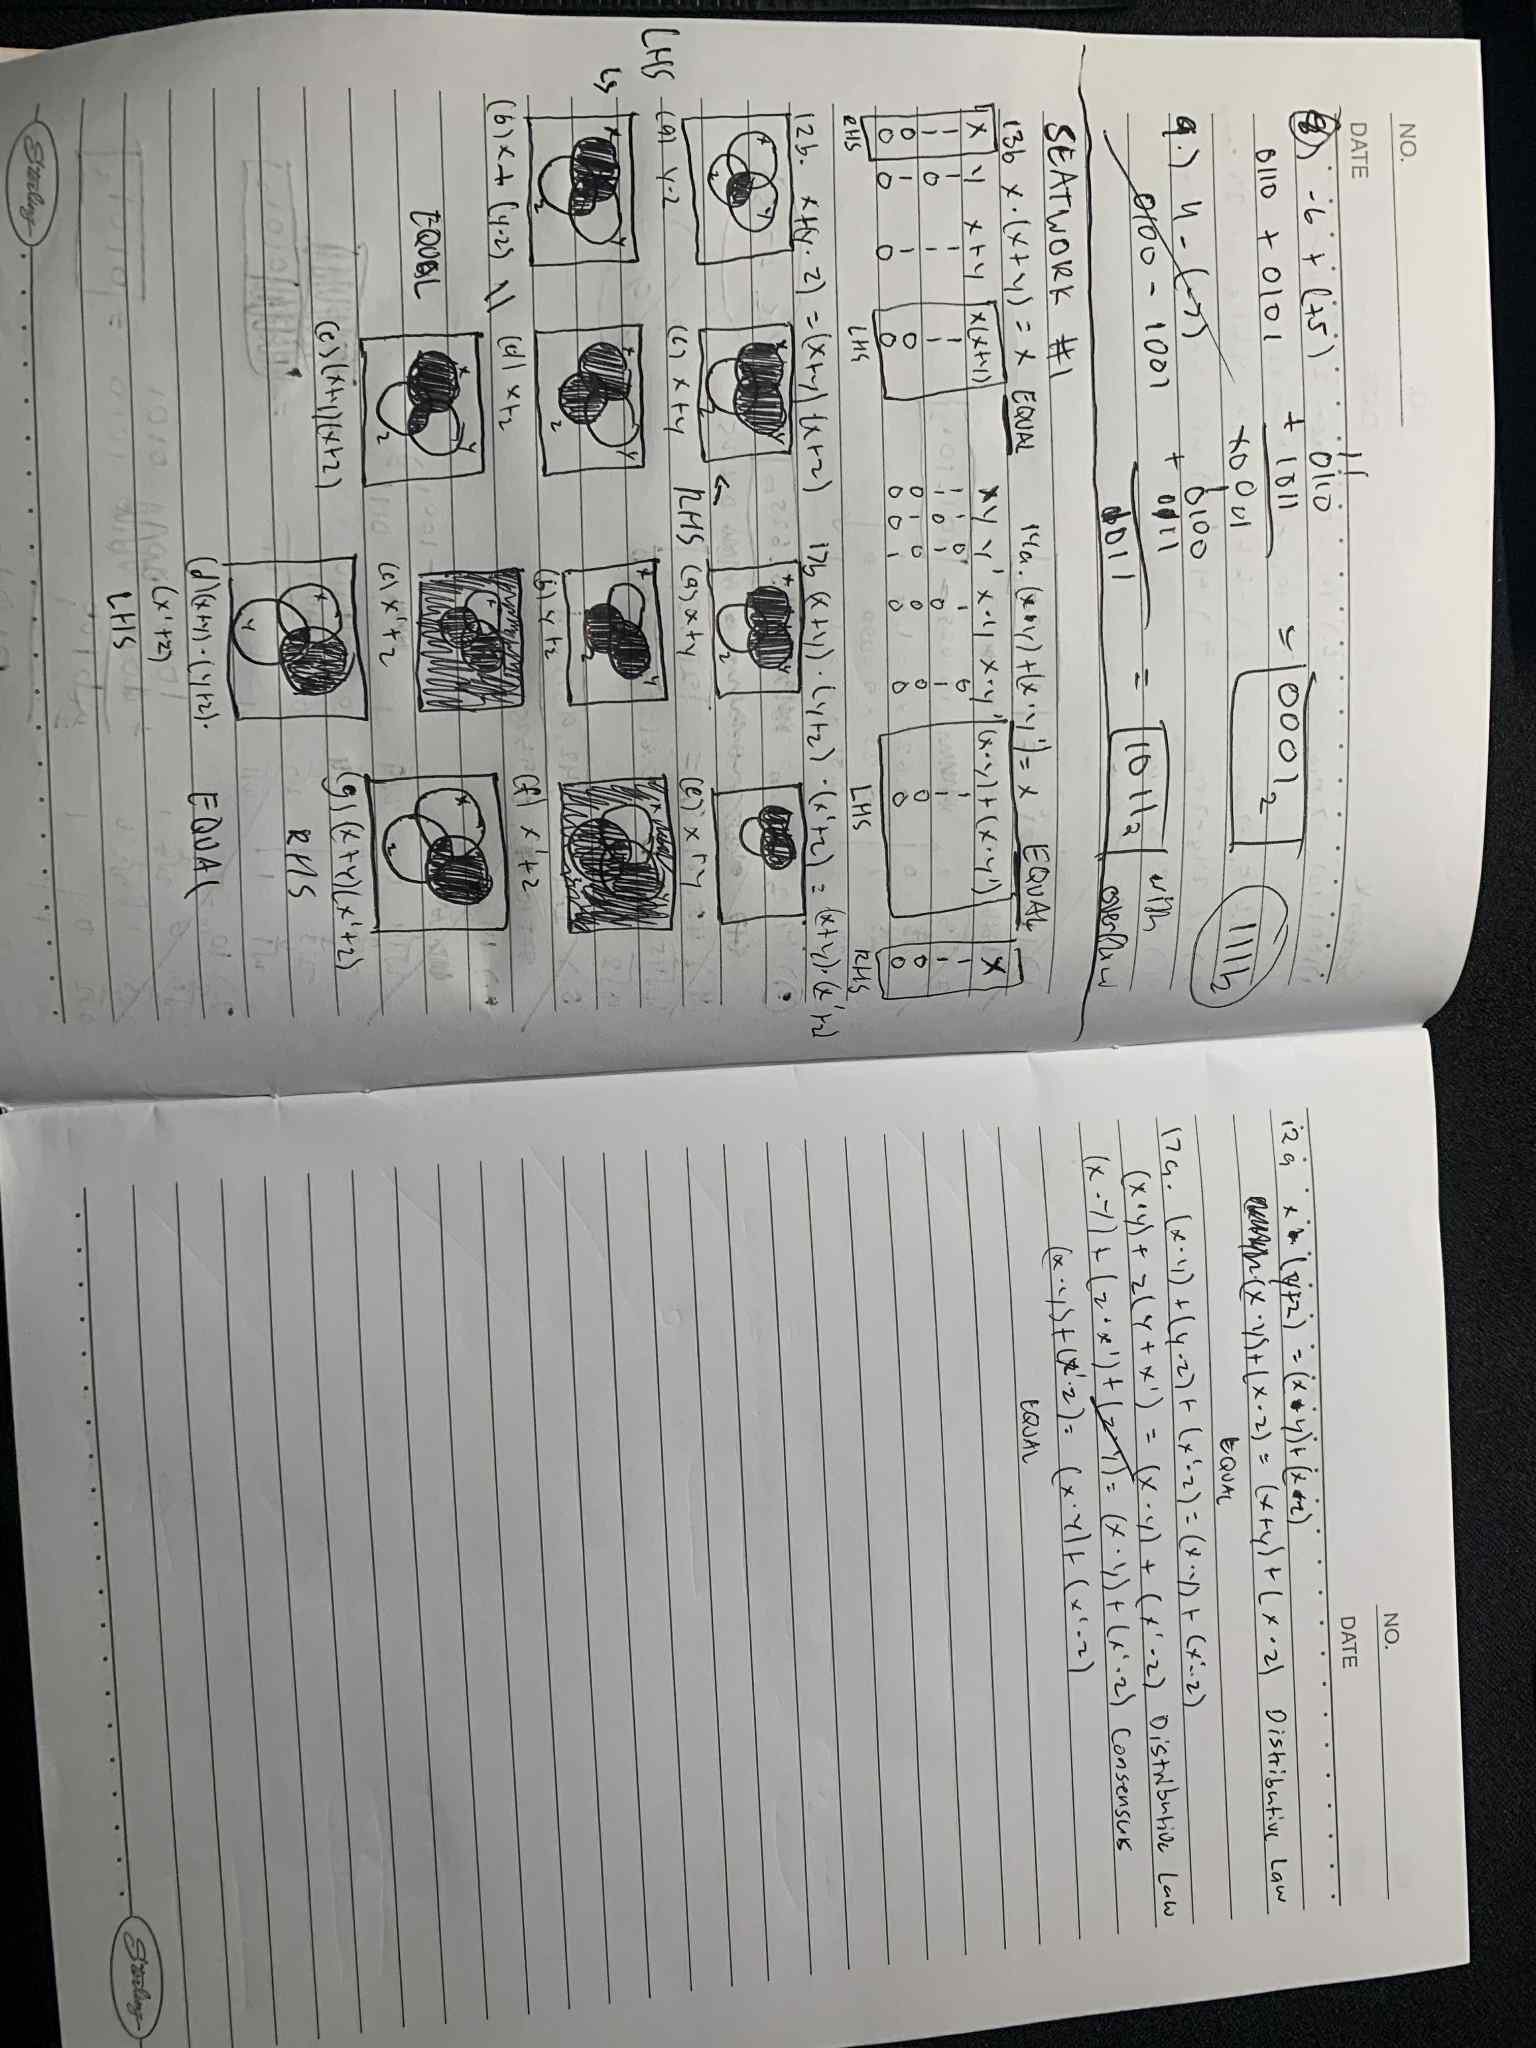 NO.
DATE
8) -6 + (+5)
0110 + 0101
11
0110
+ 1011
x0001
= 0001₂
1111₂
9.) 4 - (-7)
0100 - 1001
1
0100
+ 0111
1011
= 1011₂ with overflow
SEATWORK #1
13b x·(x+y) = x EQUAL
x y x+y x(x+y)
1 1 1 1
1 0 1 1
0 1 1 0
0 0 0 0
RHS LHS
14a. (x·y)+(x·y') = x EQUAL
x y y' x·y x·y' (x·y)+(x·y') x
1 1 0 1 0 1 1
1 0 1 0 1 1 1
0 1 0 0 0 0 0
0 0 1 0 0 0 0
LHS RHS
12b. x+(y·z) = (x+y)(x+z)
x y z
(a) y·z
LHS
x y z
(b) x + (y·z)
x y z
(c) x+y
← RHS
x y z
(d) x+z
EQUAL
x y z
(e) (x+y)(x+z)
17b (x+y)·(y+z)·(x'+z) = (x+y)·(x'+z)
x y z
(a) x+y
x y z
(b) y+z
(c) x'+z
x y
(d) (x+y)·(y+z)·
(x'+z)
LHS
(e) x+y
x y z
(f) x'+z
x z
(g) (x+y)(x'+z)
RHS
EQUAL
Sterling
NO.
DATE
12a x·(y+z) = (x·y)+(x·z)
(x·y)+(x·z) = (x+y)+(x·z) Distributive Law
EQUAL
17a. (x·y)+(y·z)+(x'·z) = (x·y)+(x'·z)
(x·y)+z(y+x') = (x·y)+(x'·z) Distributive Law
(x·y)+(z·x')+(z·y) = (x·y)+(x'·z) Consensus
(x·y)+(x'·z) = (x·y)+(x'·z)
EQUAL
Sterling